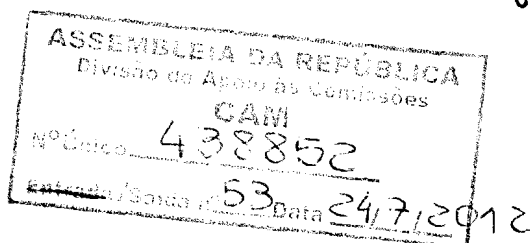 ASSEMBLEIA DA REPÚBLICA
Divisão de Apoio às Comissões
CAM
Nº Único 438852
Entrada/Saída nº 53 Data 24/7/2012